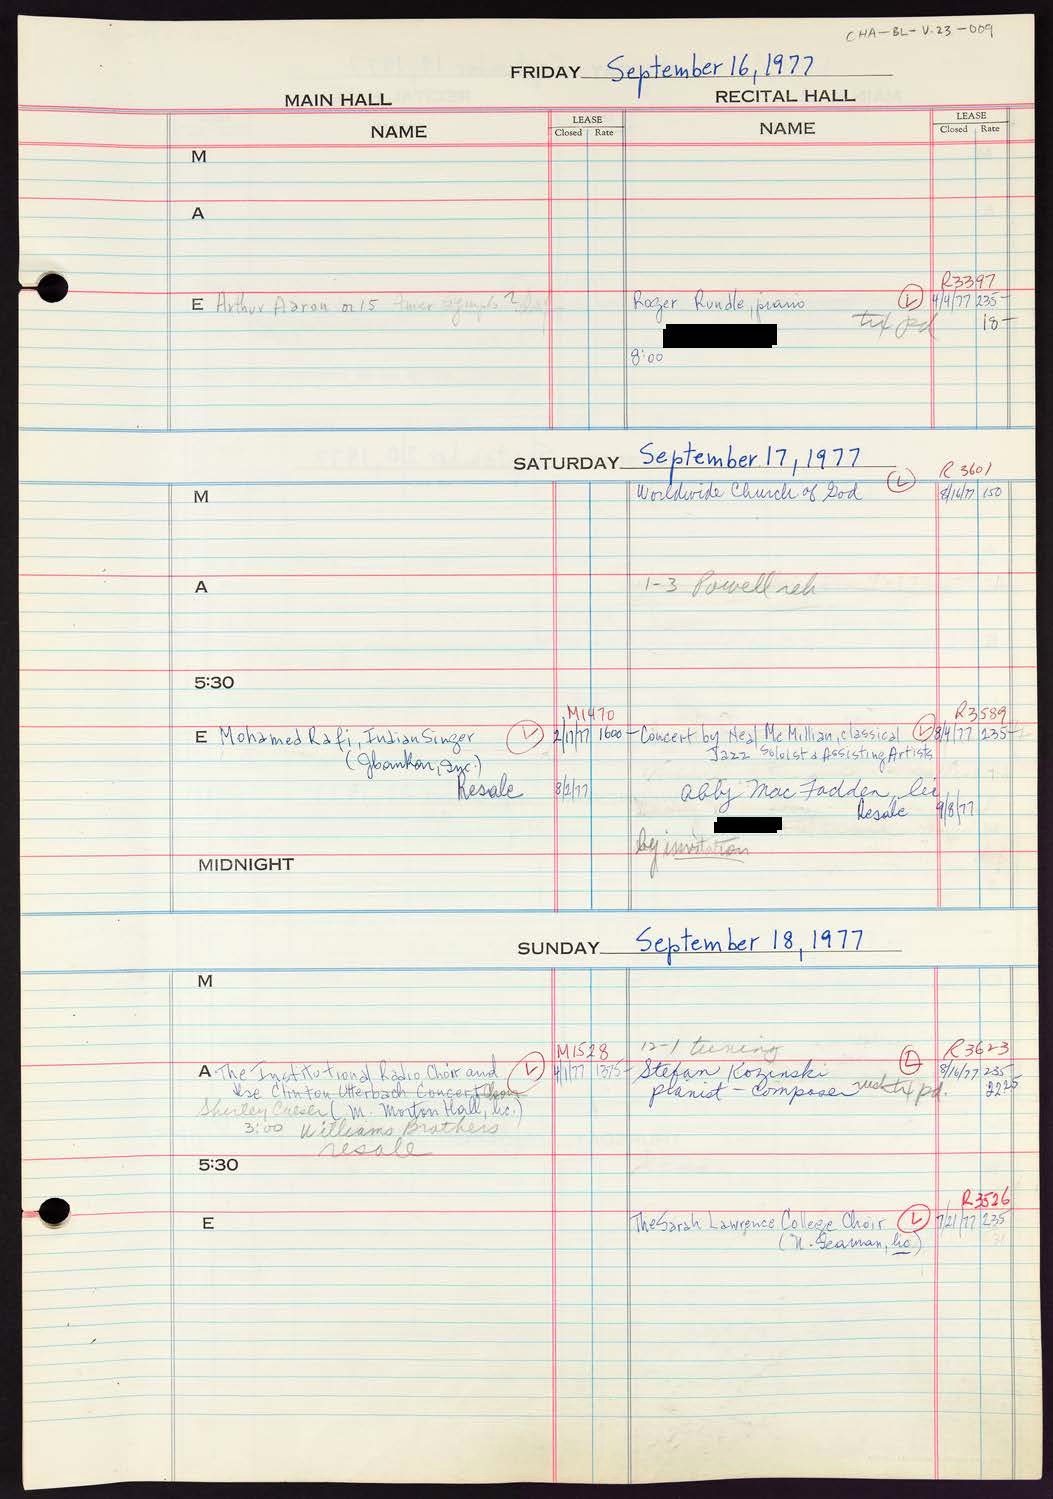 CHA-BL-V.23-009
FRIDAY September 16, 1977
MAIN HALL RECITAL HALL
NAME LEASE Closed Rate NAME LEASE Closed Rate
M
A
R3397
E Arthur Aaron or 15 Amer Symph ? Roger Rundle, piano L 4/4/77 235-
txt pd 18-
8:00
SATURDAY September 17, 1977
R 3601
M Worldwide Church of God L 8/16/77 150
A 1-3 Powell reh
5:30
M1470 R3589
E Mohamed Rafi, Indian Singer L 2/17/77 1600- Concert by Neal McMillian, classical L 8/4/77 235-
Jazz Soloist & Assisting Artists
Resale 8/2/77 Abby MacFadden, lic
Resale 9/8/77
by invitation
MIDNIGHT
SUNDAY September 18, 1977
M
M1528 12-1 tuning R3623
A The Institutional Radio Choir and L 4/1/77 1375- Stefan Kozinski L 8/16/77 235-
the Clinton Utterbach Concert Choir pianist - Composer txt pd.
Shirley Caesar (M. Morton Hall, lic.)
3:00 Williams Brothers
resale
5:30
R3526
E The Sarah Lawrence College Choir L 7/21/77 235
(N. Seaman, lic)